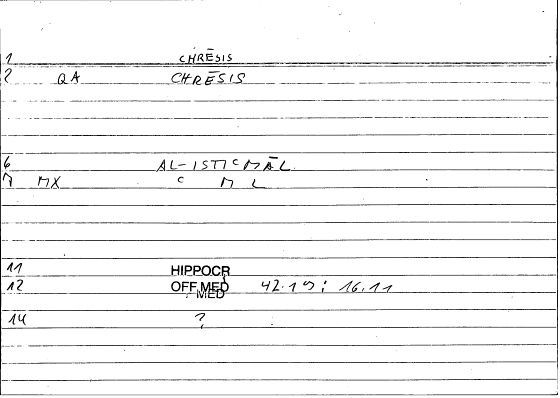 1 CHRĒSIS
2 QA CHRĒSIS
6 AL-ISTIᶜMĀL
7 MX ᶜ M L
11 HIPPOCR
12 OFF.MED 42.19; 16.11
MED
14 ?